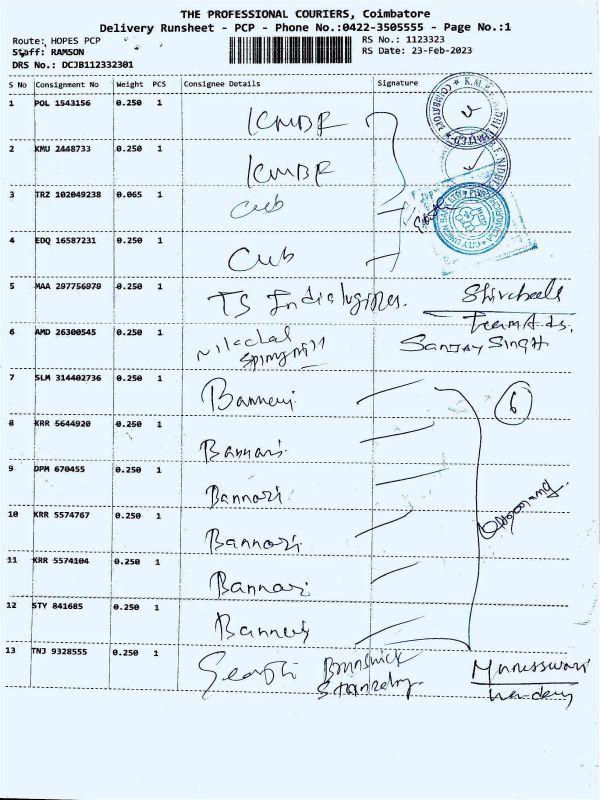 THE PROFESSIONAL COURIERS, Coimbatore
Delivery Runsheet - PCP - Phone No.:0422-3505555 - Page No.:1
Route: HOPES PCP
RS No.: 1123323
Staff: RAMSON
RS Date: 23-Feb-2023
DRS No.: DCJB112332301
S No Consignment No Weight PCS Consignee Details Signature
1 POL 1543156 0.250 1
KMBR
2 KMU 2448733 0.250 1
KMBR
3 TRZ 102049238 0.065 1
Cub
4 EDQ 16587231 0.250 1
Cub
5 MAA 297756979 0.250 1
TS
6 AMD 26300545 0.250 1
SANJAY SINGH
7 SLM 314402736 0.250 1
Bannari
6
8 KRR 5644920 0.250 1
Bannari
9 DPM 670455 0.250 1
Bannari
10 KRR 5574767 0.250 1
Bannari
11 KRR 5574104 0.250 1
Bannari
12 STY 841685 0.250 1
Bannari
13 TNJ 9328555 0.250 1
Brunswick